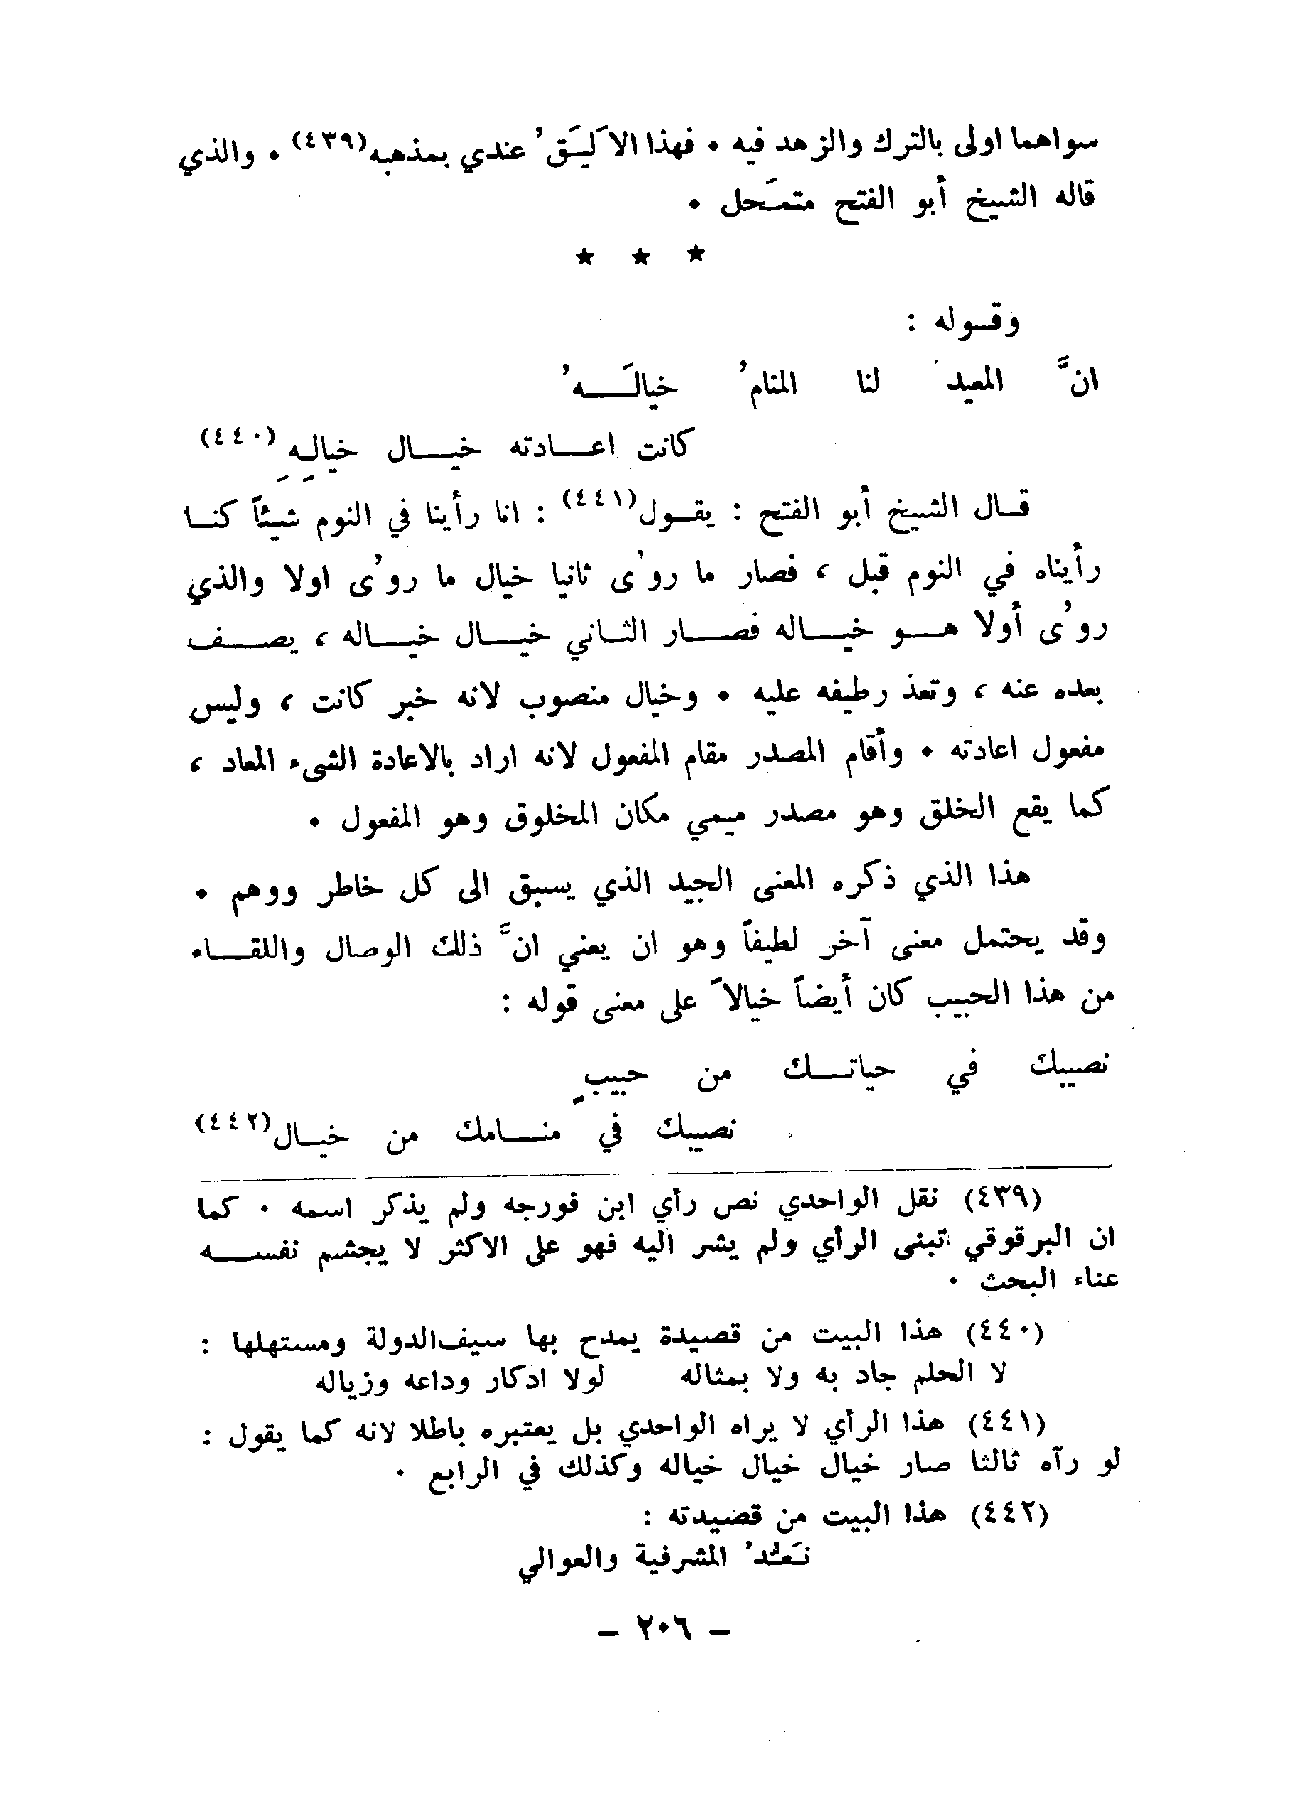 سواهما اولى بالترك والزهد فيه • فهذا الاَليَق ُ عندي بمذهبه(٤٣٩) • والذي
قاله الشيخ أبو الفتح متمَحل •
★ ★ ★
وقـوله :
انَّ المعيد لنا المنام ُ خيالَـــه ُ
كانت اعـــادته خيـــال خيالِهِ (٤٤٠)
قـال الشيخ أبو الفتح : يقـول(٤٤١) : انا رأينا في النوم شيئاً كنـا
رأيناه في النوم قبل ، فصار ما روُى ثانيا خيال ما روُى اولا والذي
روُى أولا هـو خيـاله فصـار الثـاني خيـال خيـاله ، يصـف
بعده عنه ، وتعذ رطيفه عليه • وخيال منصوب لانه خبر كانت ، وليس
مفعول اعادته • وأقام المصدر مقام المفعول لانه اراد بالاعادة الشىء المعاد ،
كما يقع الخلق وهو مصدر ميمي مكان المخلوق وهو المفعول •
هذا الذي ذكره المعنى الجيد الذي يسبق الى كل خاطر ووهم •
وقد يحتمل معنى آخر لطيفاً وهو ان يعني انَّ ذلك الوصال واللقـاء
من هذا الحبيب كان أيضاً خيالاً على معنى قوله :
نصيبك في حياتـــك من حبيبٍ
نصيبك في منـــامك من خيـال(٤٤٢)
(٤٣٩) نقل الواحدي نص رأي ابن فورجه ولم يذكر اسمه • كما
ان البرقوقي تبنى الرأي ولم يشر اليه فهو على الاكثر لا يجشم نفســه
عناء البحث •
(٤٤٠) هذا البيت من قصيدة يمدح بها سيف الدولة ومستهلها :
لا الحلم جاد به ولا بمثاله لولا ادكار وداعه وزياله
(٤٤١) هذا الرأي لا يراه الواحدي بل يعتبره باطلا لانه كما يقول :
لو رآه ثالثا صار خيال خيال خياله وكذلك في الرابع •
(٤٤٢) هذا البيت من قصيدته :
نَعُدُّ المشرفية والعوالي
– ٢٠٦ –